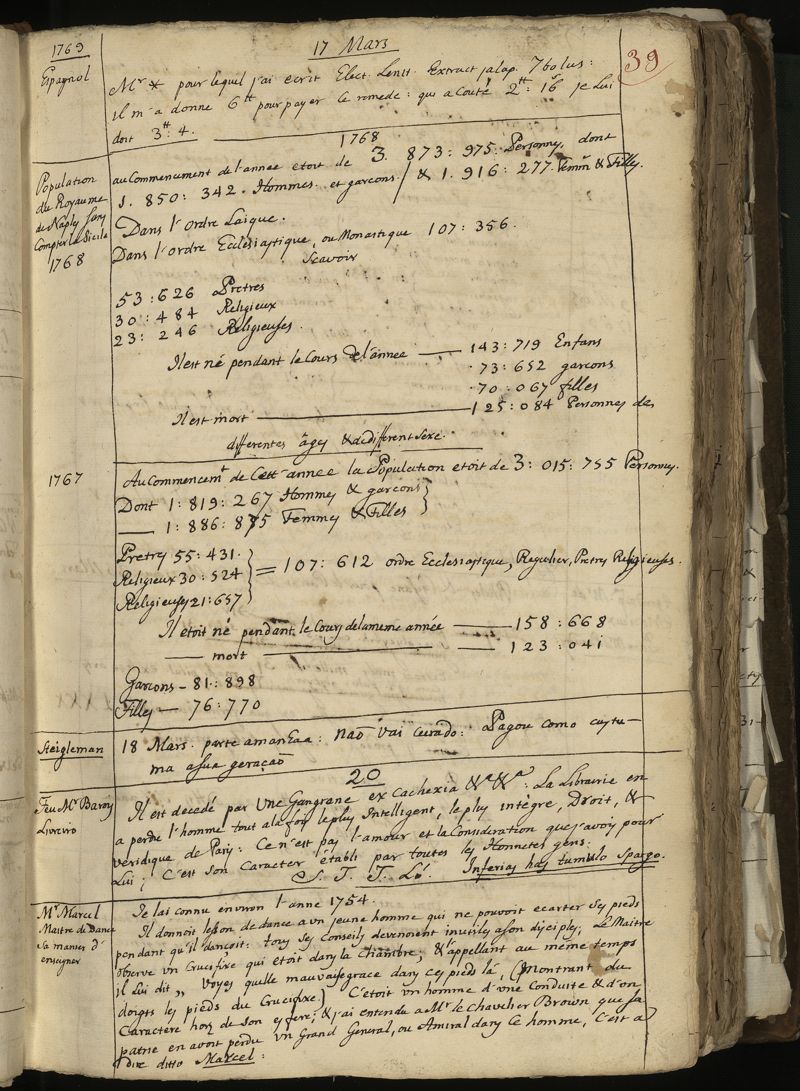 1769
17 Mars
39
Espagnol
Mr * pour lequel j'ai ecrit Elect. Lenit. Extract jalap. 7 bolus:
il m'a donné 6 tt pour payer le remede: qui a couté 2 tt: 16 s je lui
doit 3 tt: 4.
1768
Population
du Royaume
de Naply sans
Compter la Sicile
1768
au Commencement de l'annee etoit de 3. 873: 975: Personnes, dont
1. 850: 342. Hommes. et garcons / & 1. 916: 277. Femmes & Filles.
Dans l'ordre Laique.
Dans l'ordre Ecclesiastique, ou Monastique 107: 356.
Scavoir
53: 626 Pretres
30: 484 Religieux
23: 246 Religieuses.
Il est né pendant le Cours de l'année — 143: 719 Enfans
. 73: 652 garcons
. 70: 067 filles
Il est mort — 125: 084 Personnes de
differentes âges & de different Sexe.
1767
Au Commencemt de Cette annee la Population etoit de 3: 015: 755 Personnes.
Dont 1: 819: 267 Hommes & garcons }
— 1: 886: 875 Femmes & Filles }
Pretres 55: 431.
Religieux 30: 524 } = 107: 612 ordre Ecclesiastique, Regulier, Pretres Religieuses.
Religieuses 21: 657
Il etoit né pendant le Cours de la meme année — 158: 668
— mort — 123: 041
Garçons — 81: 898
Filles — 76: 770
Steigleman
18 Mars. parte amanhaa: não vai curado: Pagou como custu-
ma a sua geração
20
Feu Mr Baroy
Livreiro
Il est decedé par Une Gangrane ex Cachexia &a &a: La Librairie en
a perdu l'homme tout a la fois le plus Intelligent, le plus intègre, Droit, &
veridique de Paris: Ce n'est pas l'amour et la Consideration que j'avois pour
Lui; C'est son Caracter établi par toutes les Honnetes gens:
S. T. T. L. Inferias has tumulo spargo.
Mr Marcel
Maitre de Dance
Sa maniere d'
ensegner
Je lai connu environ l'anne 1754.
Il donnoit leson de dance a un jeune homme qui ne pouvoit ecarter ses pieds
pendant qu'il dançoit: tous ses Conseils devenoient inutils a son disciple; Le Maitre
observe un Crucifixe qui etoit dans la Chambre; & l'appellant au même temps
il Lui dit „ Voyes quelle mauvaise grace dans ces pieds là, (Montrant du
doigts les pieds du Crucifixe) C'etoit un homme d'une Conduite & d'un
Caractere hors de son esfere; & j'ai entendu a Mr le Chavelier Brown que sa
patrie en avoit perdu un Grand General, ou Amiral dans le homme, C'est a
dire ditto Marcel: